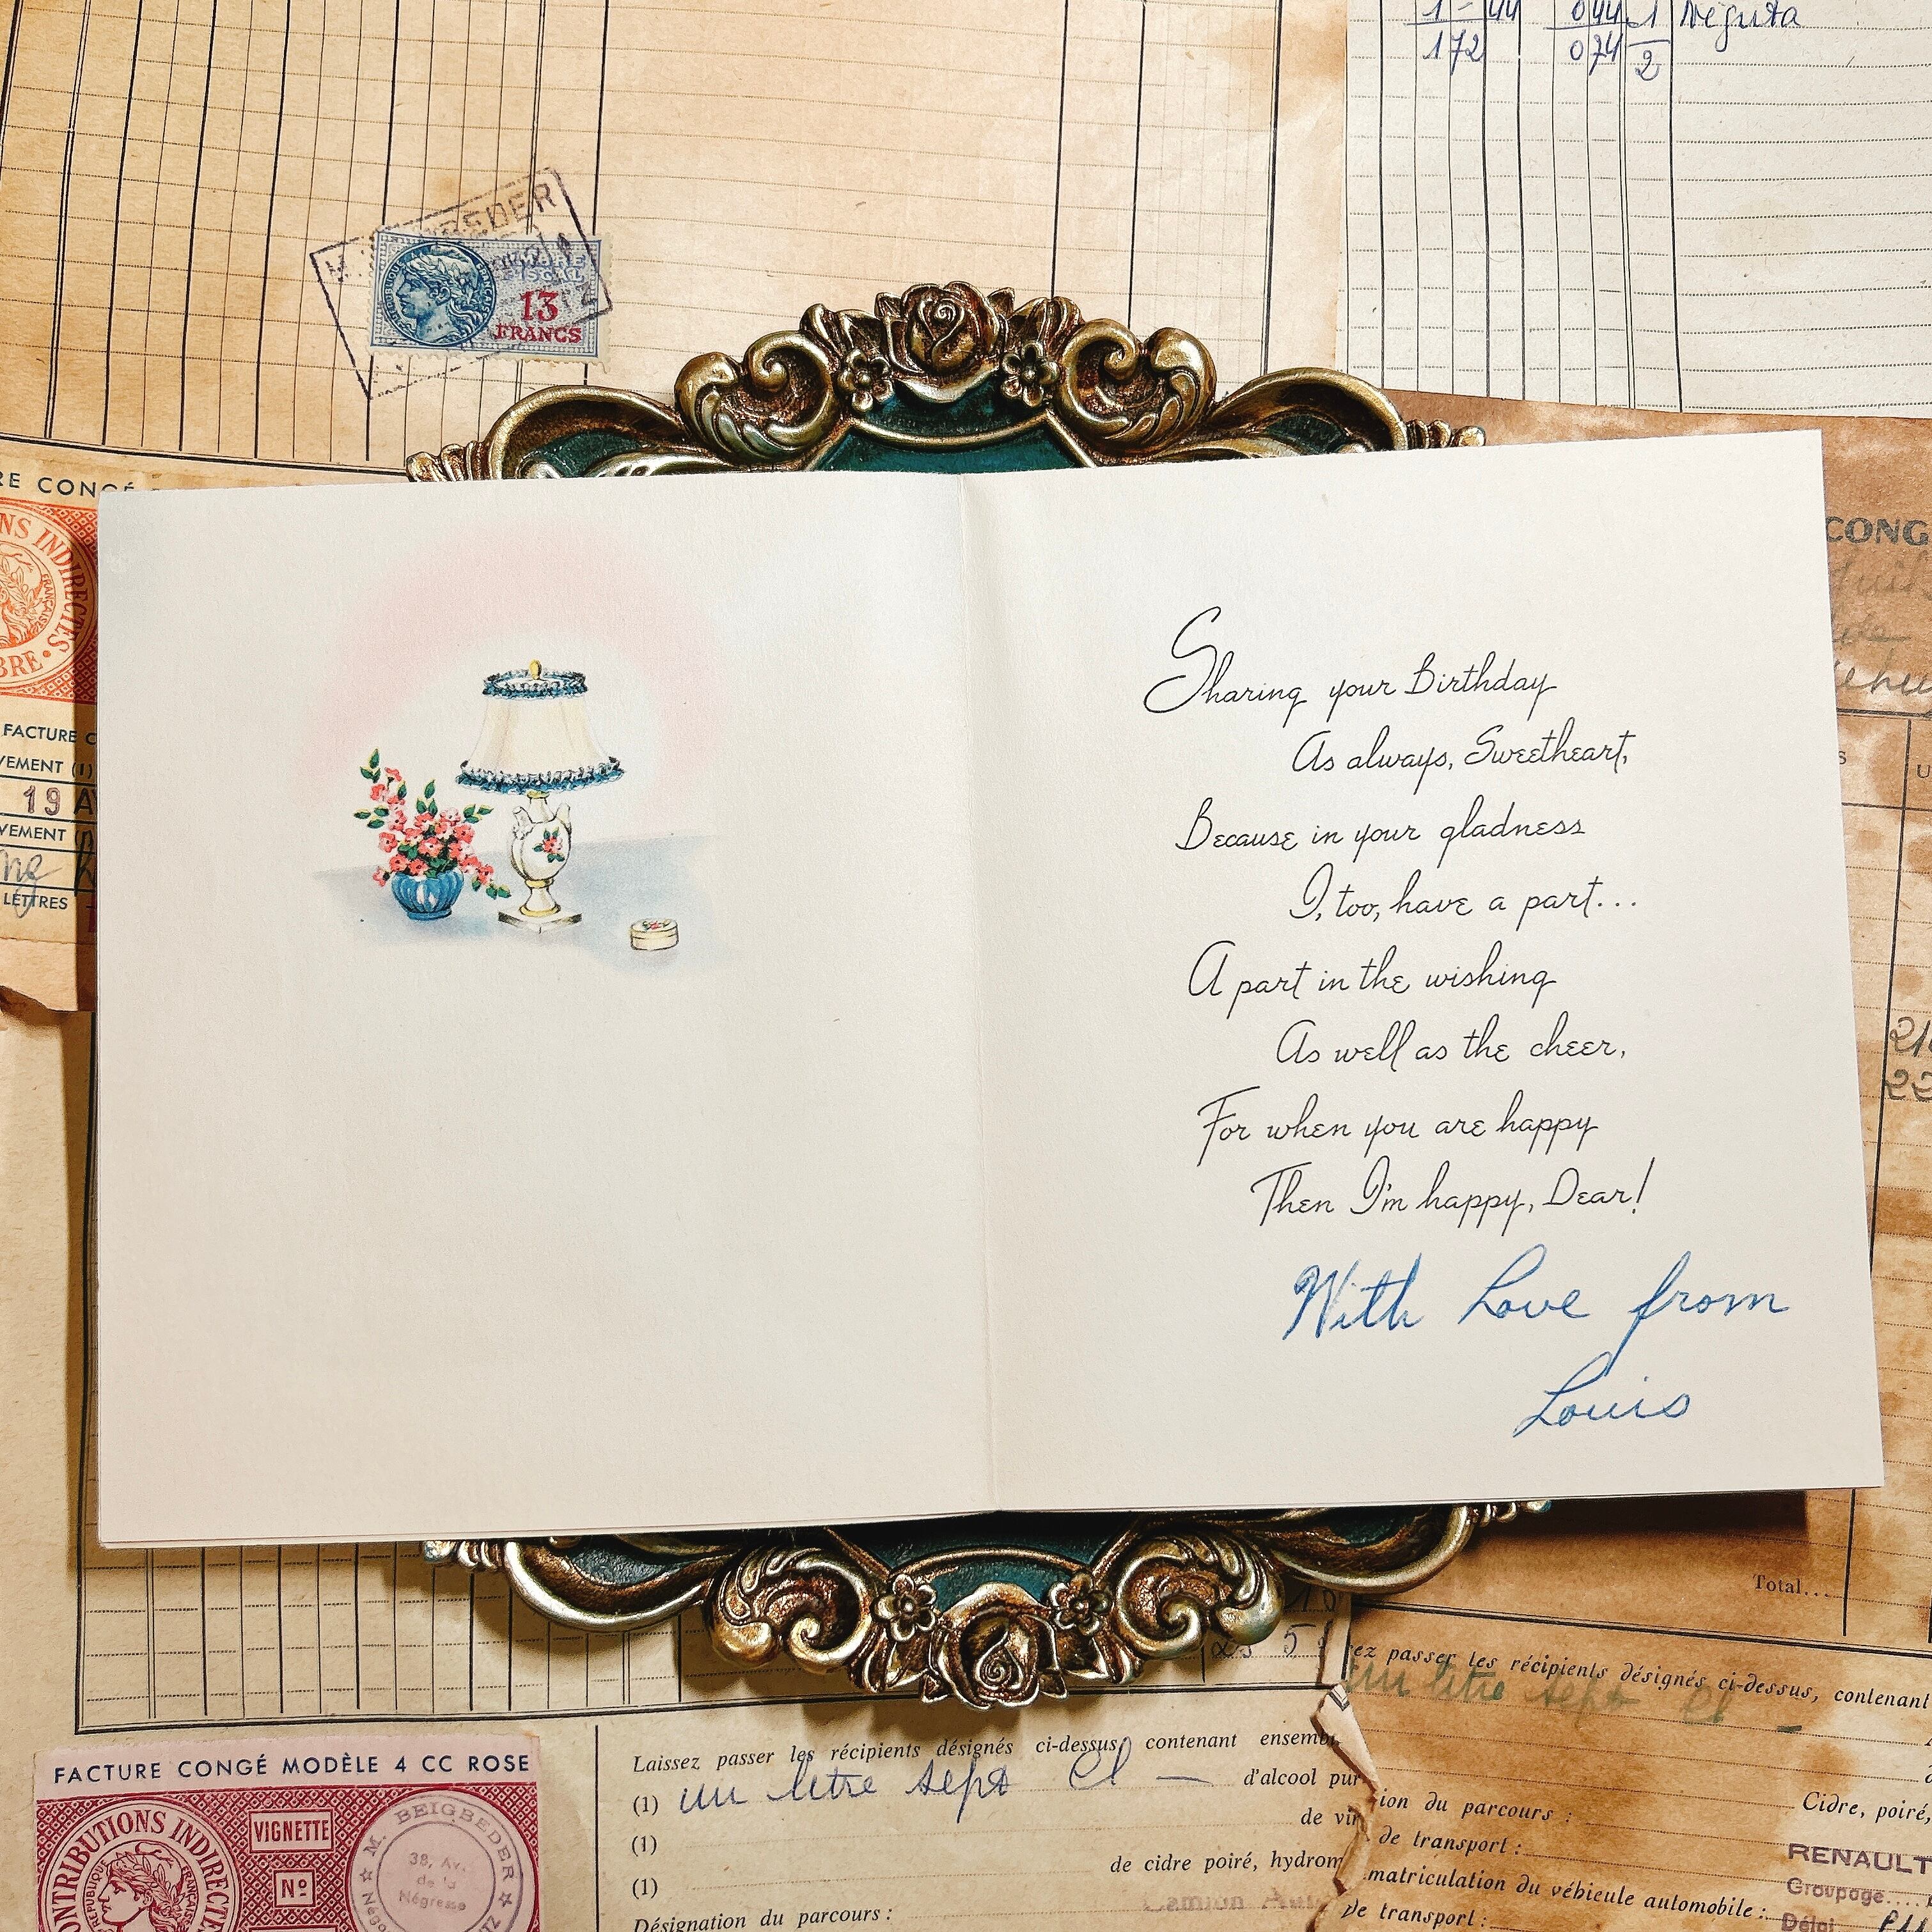 1 - 44 044 1 Néguta
172 074 2
13
FRANCS
RE CONGÉ
FACTURE
VEMENT (1)
19 A
VEMENT
LETTRES
CONG
Sharing your Birthday
As always, Sweetheart,
Because in your gladness
I, too, have a part...
A part in the wishing
As well as the cheer,
For when you are happy
Then I'm happy, Dear!
With Love from
Louis
Total...
ez passer les récipients désignés ci-dessus, contenant
un litre sept cl —
FACTURE CONGÉ MODÈLE 4 CC ROSE
CONTRIBUTIONS INDIRECTES
VIGNETTE
No
M. BEIGBEDER
38, Av.
de la
Négresse
Laissez passer les récipients désignés ci-dessus, contenant
(1) un litre sept cl — d'alcool pur
(1) de vin
(1) de cidre poiré, hydrom
Désignation du parcours :
ion du parcours :
de transport :
matriculation du véhicule automobile :
de transport :
Cidre, poiré,
RENAULT
Groupage
Délai